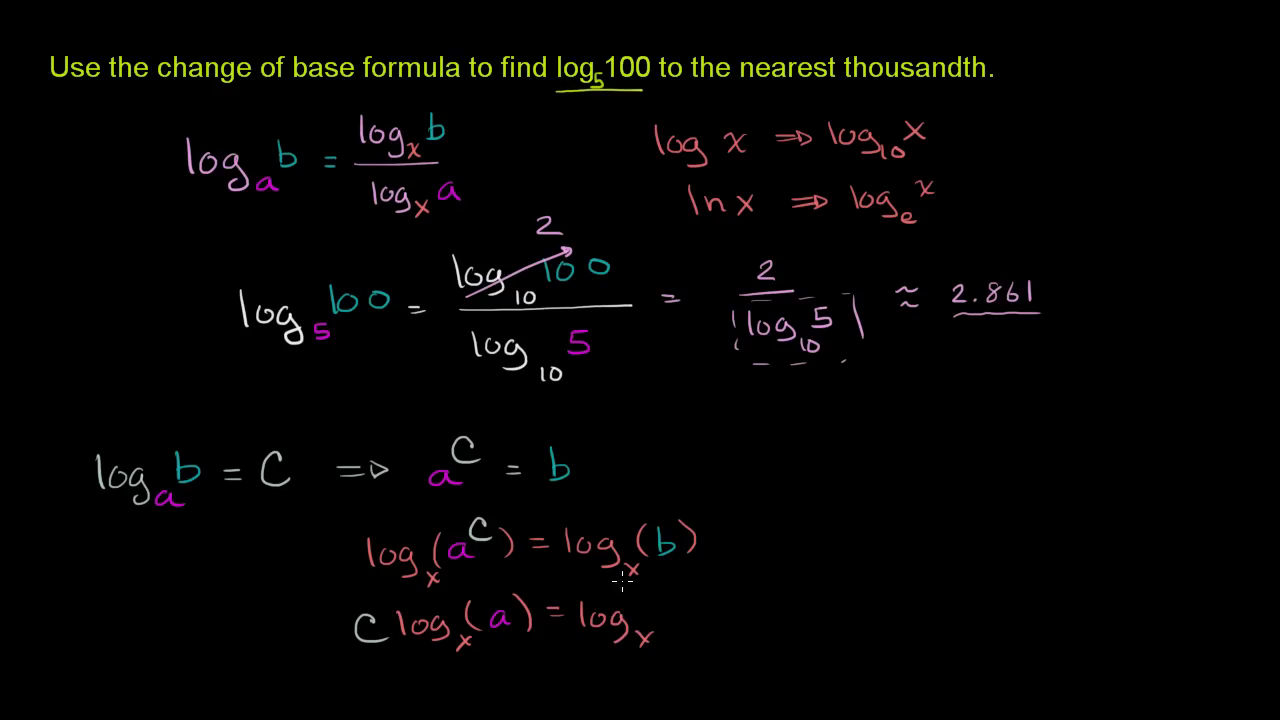 Use the change of base formula to find log₅100 to the nearest thousandth.
logₐ b = logₓ b / logₓ a
log x ⇒ log₁₀ x
ln x ⇒ logₑ x
2
log₅ 100 = log₁₀ 100 / log₁₀ 5 = 2 / log₁₀ 5 ≈ 2.861
logₐ b = C ⇒ a^C = b
logₓ(a^C) = logₓ(b)
C logₓ(a) = logₓ